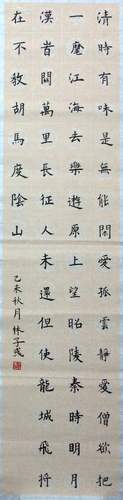 清時有味是無能閒愛孤雲靜愛僧欲把
一麾江海去樂遊原上望昭陵秦時明月
漢旹關萬里長征人未還但使龍城飛將
在不教胡馬度陰山
乙未秋月林子彧